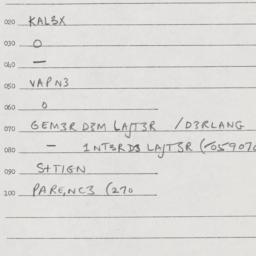 020 KALƷX
030 O
040 —
050 VAPNƷ
060 o
070 GEMƷR DƷM LAJTƷR / DƷRLANG
080 — INTƷRDƷ LAJTƷR (
090 S+TIGN
100 PARENCƷ (270